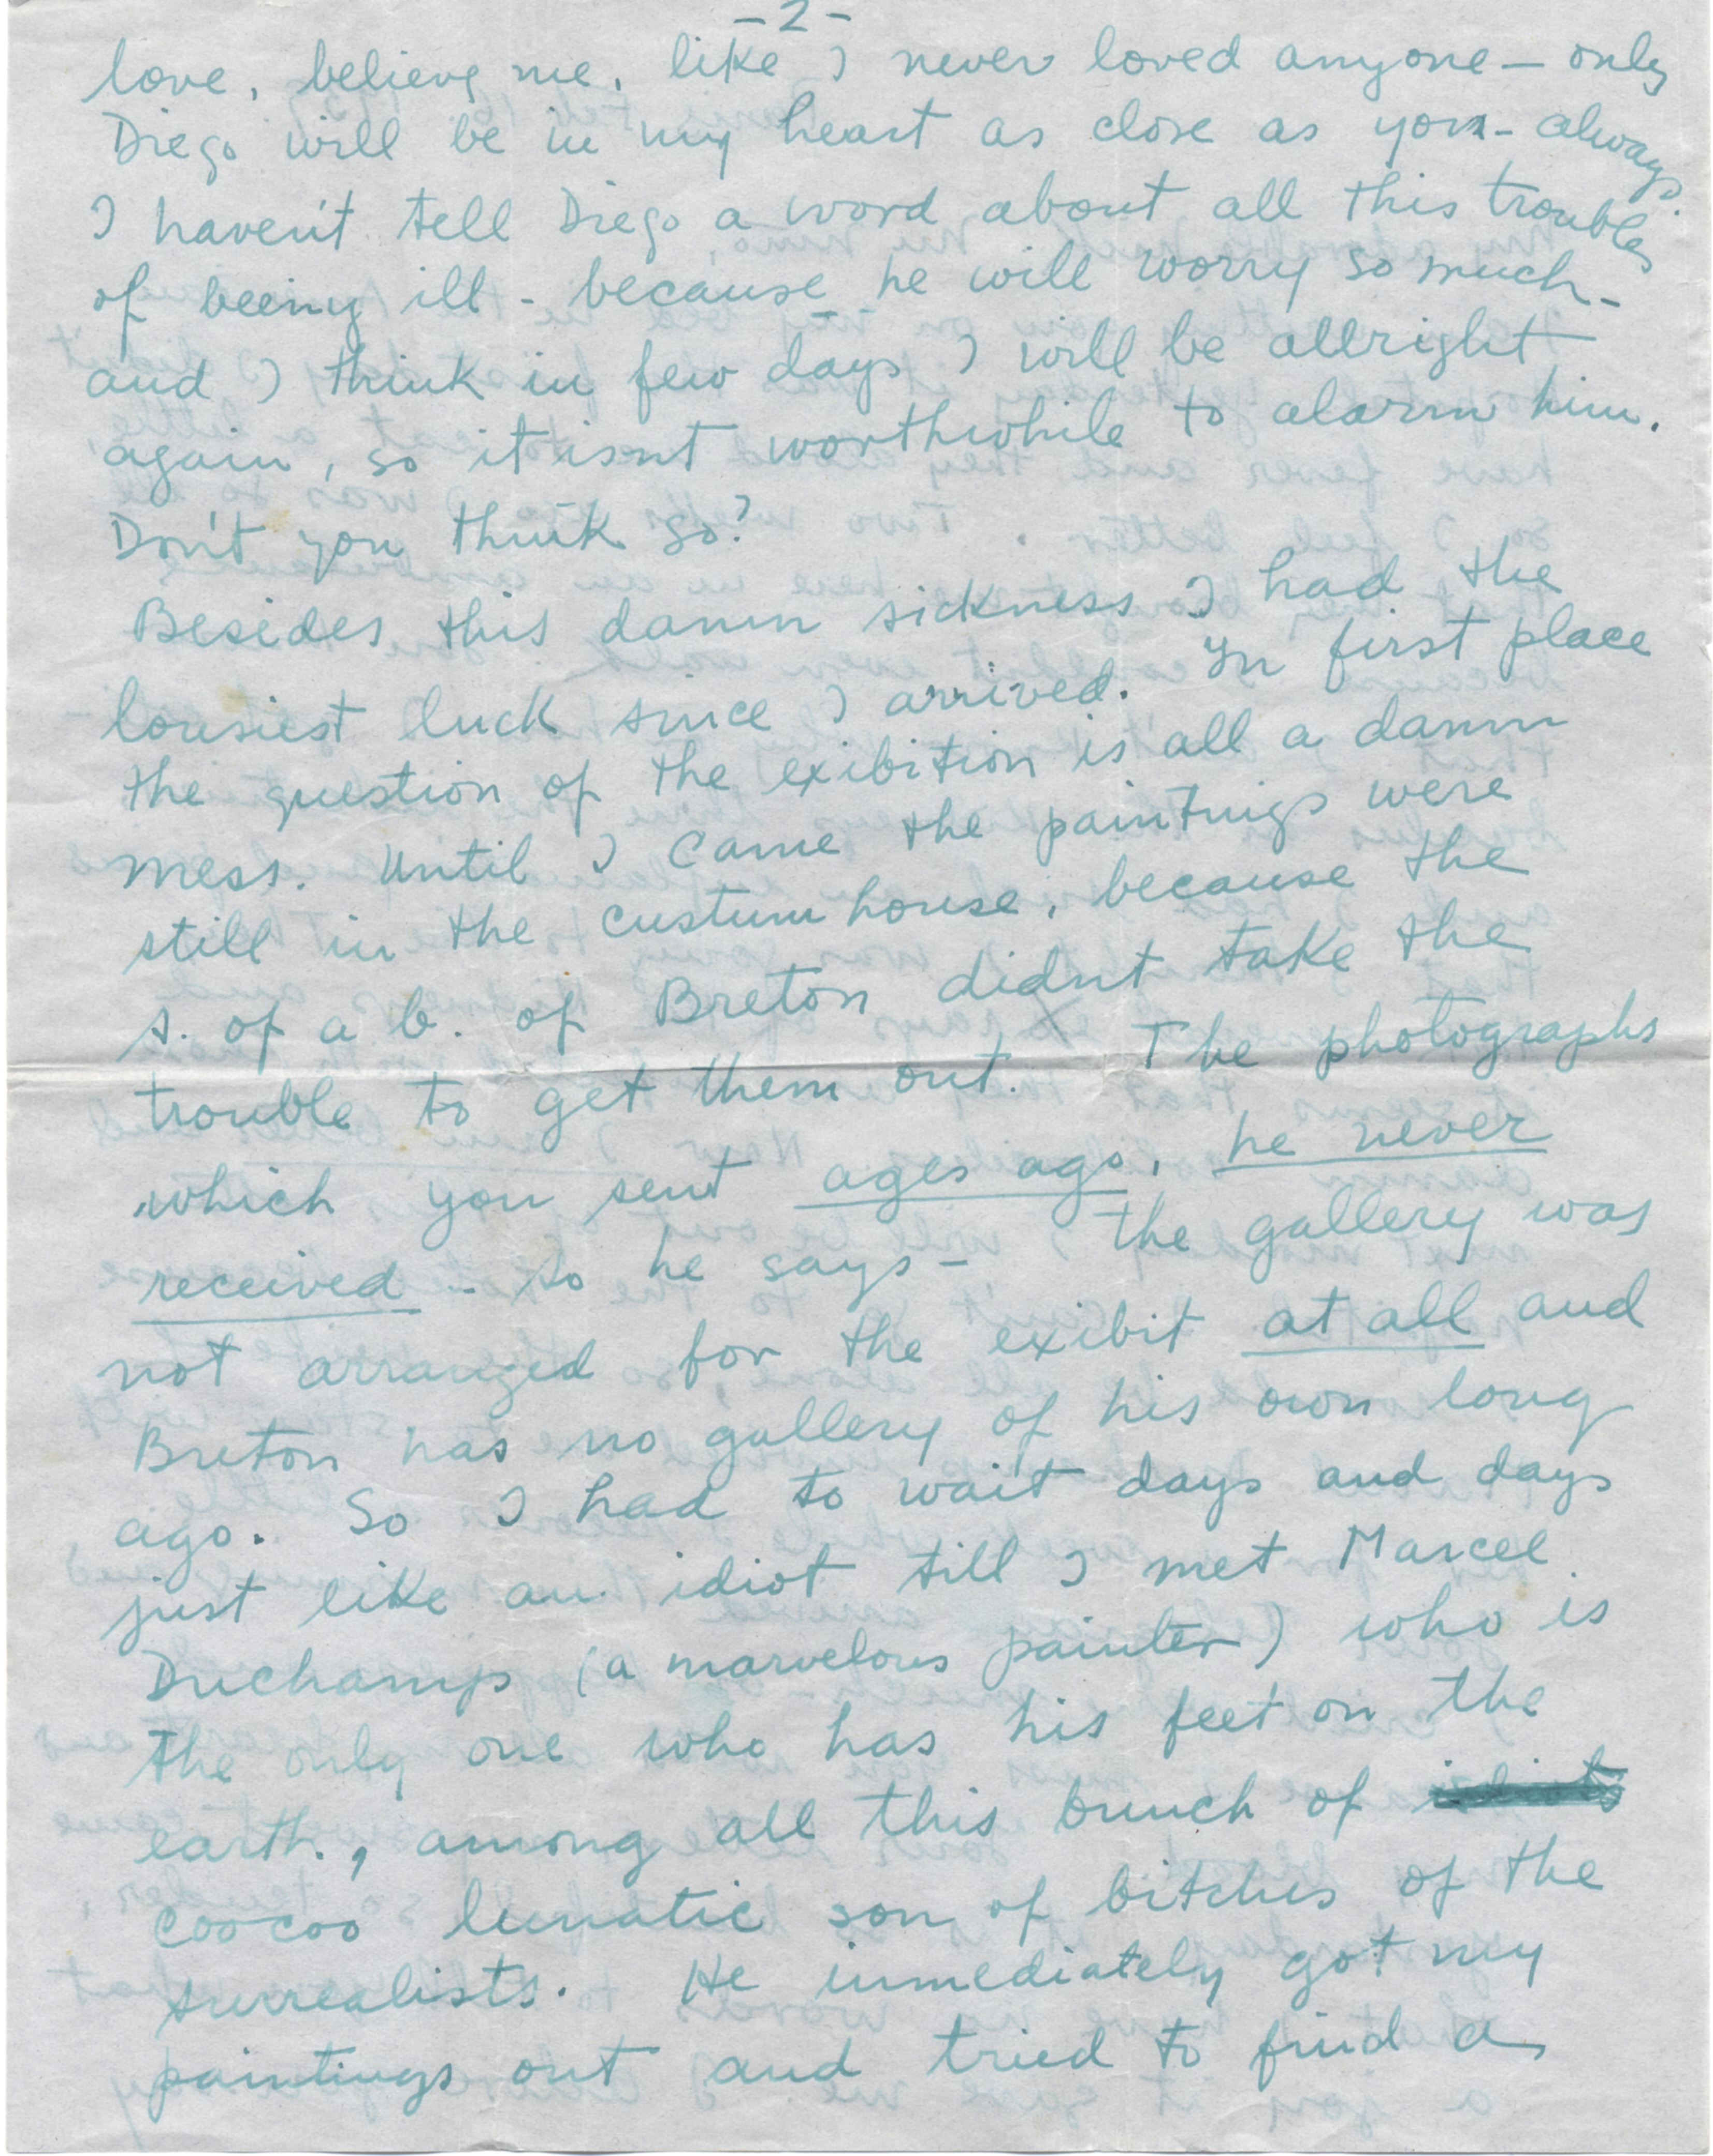 -2-
love, believe me, like I never loved anyone — only
Diego will be in my heart as close as you - always.
I haven't tell Diego a word about all this troubles
of beeing ill - because he will worry so much -
and I think in few days I will be allright
again, so it isnt worthwhile to alarm him.
Don't you think so?
Besides this damn sickness I had the
lousiest luck since I arrived. In first place
the question of the exibition is all a damn
mess. Until I came the paintings were
still in the custum house, because the
s. of a b. of Breton didnt take the
trouble to get them out. The photographs
which you sent ages ago, he never
received - so he says - the gallery was
not arranged for the exibit at all and
Breton has no gallery of his own long
ago. So I had to wait days and days
just like an idiot till I met Marcel
Duchamp (a marvelous painter) who is
the only one who has his feet on the
earth, among all this bunch of
coocoo lunatic son of bitches of the
surrealists. He inmediately got my
paintings out and tried to find a